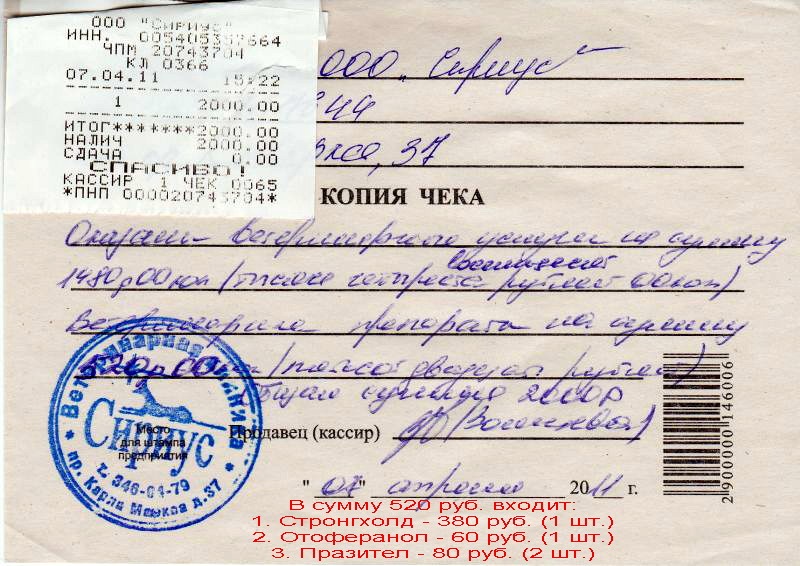 ООО "Сириус"
ИНН. 005405357664
ЧПМ 20743704
КЛ 0366
07.04.11 15:22
1 2000.00
ИТОГ*******2000.00
НАЛИЧ 2000.00
СДАЧА 0.00
СПАСИБО!
КАССИР 1 ЧЕК 0065
*ПНП 000020743704*
ООО „Сириус"
кса, 37
КОПИЯ ЧЕКА
Оказаны ветеринарного услуги на сумму
восемьдесят
1480р00коп (тысяча четыреста рублей 00коп)
Ветеринарные препараты на сумму
520р00коп (пятьсот двадцать рублей)
Общая сумма 2000р
Продавец (кассир)
"07" апреля 2011 г.
Ветеринарная клиника
Сириус
Место
для штампа
предприятия
т. 346-04-79
пр. Карла Маркса д.37
2900000146006
В сумму 520 руб. входит:
1. Стронгхолд - 380 руб. (1 шт.)
2. Отоферанол - 60 руб. (1 шт.)
3. Празител - 80 руб. (2 шт.)